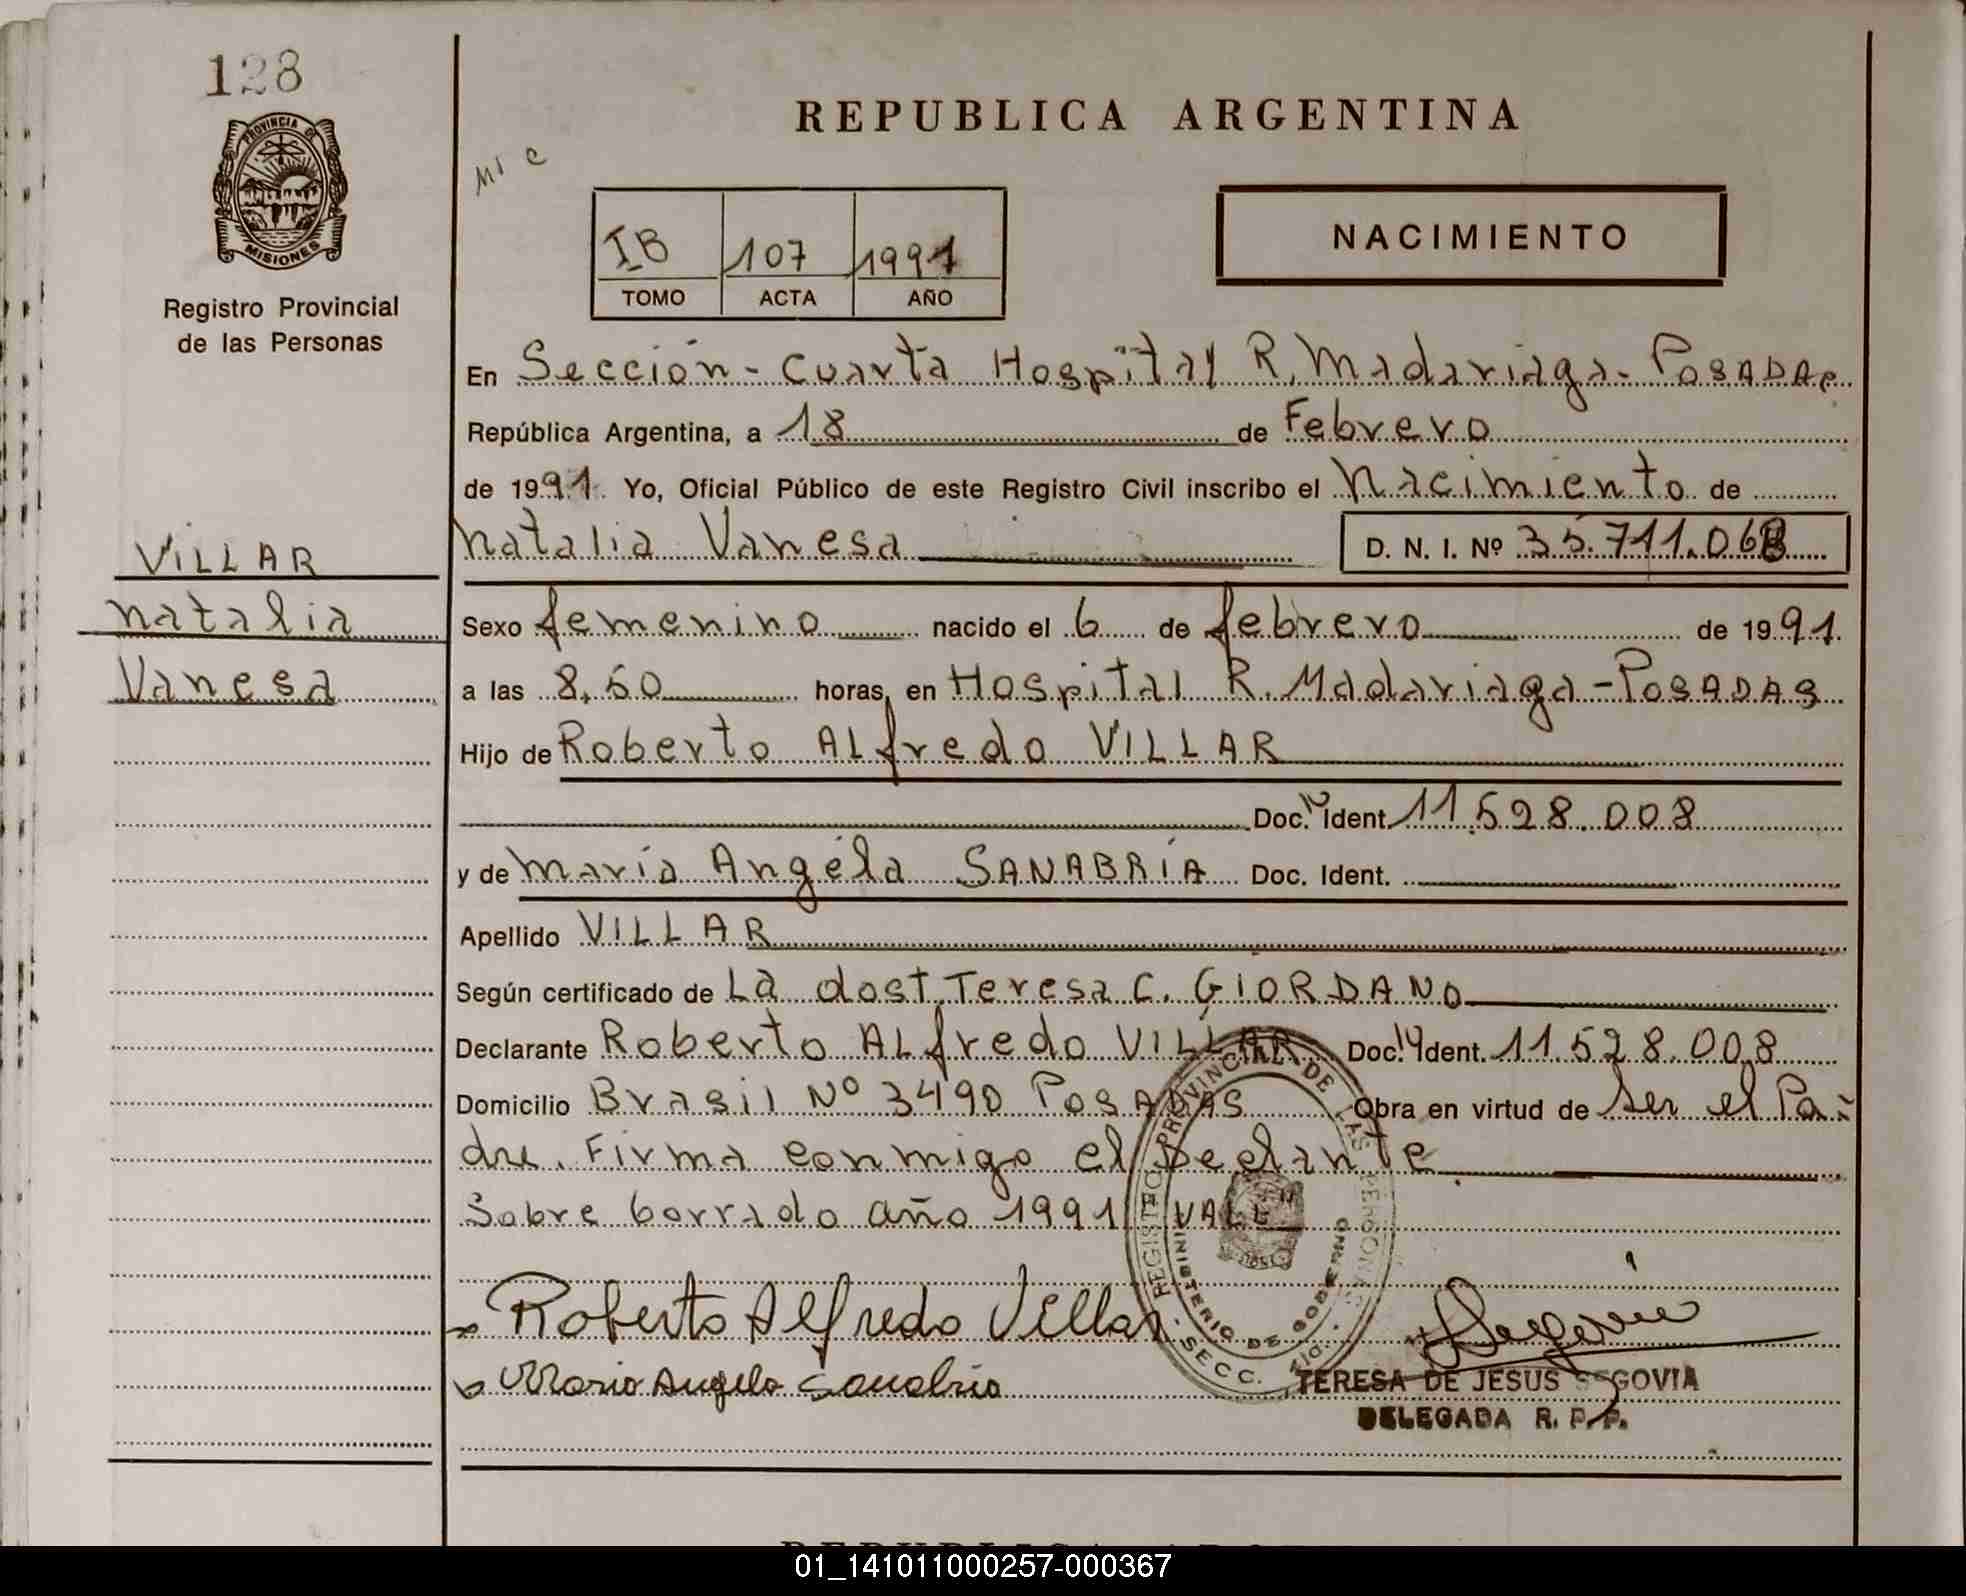 128
PROVINCIA DE
MISIONES
Registro Provincial
de las Personas
VILLAR
Natalia
Vanesa
REPUBLICA ARGENTINA
MI C
IB 107 1991
TOMO ACTA AÑO
NACIMIENTO
En Sección-Cuarta Hospital R. Madariaga-POSADAS
República Argentina, a 18 de Febrero
de 1991. Yo, Oficial Público de este Registro Civil inscribo el Nacimiento de
Natalia Vanesa D. N. I. Nº
Sexo femenino nacido el 6 de febrero de 1991
a las 8,50 horas, en Hospital R. Madariaga-POSADAS
Hijo de Roberto ALfredo VILLAR
Doc. Ident. 11.528.008
y de María Angéla SANABRÍA Doc. Ident.
Apellido VILLAR
Según certificado de La doct. Teresa C. GIORDANO
Declarante Roberto ALfredo VILLAR Doc. Ident. 11.528.008
Domicilio Brasil Nº 3490 POSADAS Obra en virtud de ser el Pa-
dre. Firma conmigo el Declante
Sobre borrado año 1991 VALE
REGISTRO PROVINCIAL DE LAS PERSONAS
MINISTERIO DE GOBIERNO
SECC.
Roberto Alfredo Villar
Maria Angela Sanabria
TERESA DE JESUS SEGOVIA
DELEGADA R. P. P.
01_141011000257-000367